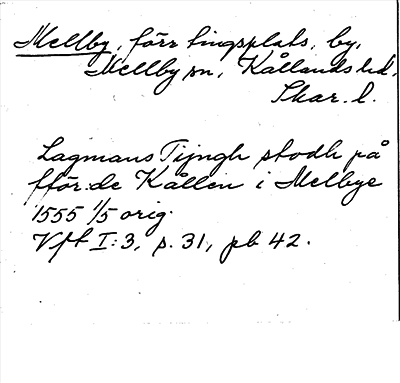 Mellby, förr tingsplats, by,
Mellby sn, Kållands hd,
Skar. l.
Lagmans Tijngh stodh på
fför:de Kållen i Melbye
1555 1/5 orig.
Vft I:3, s. 31, pb 42.